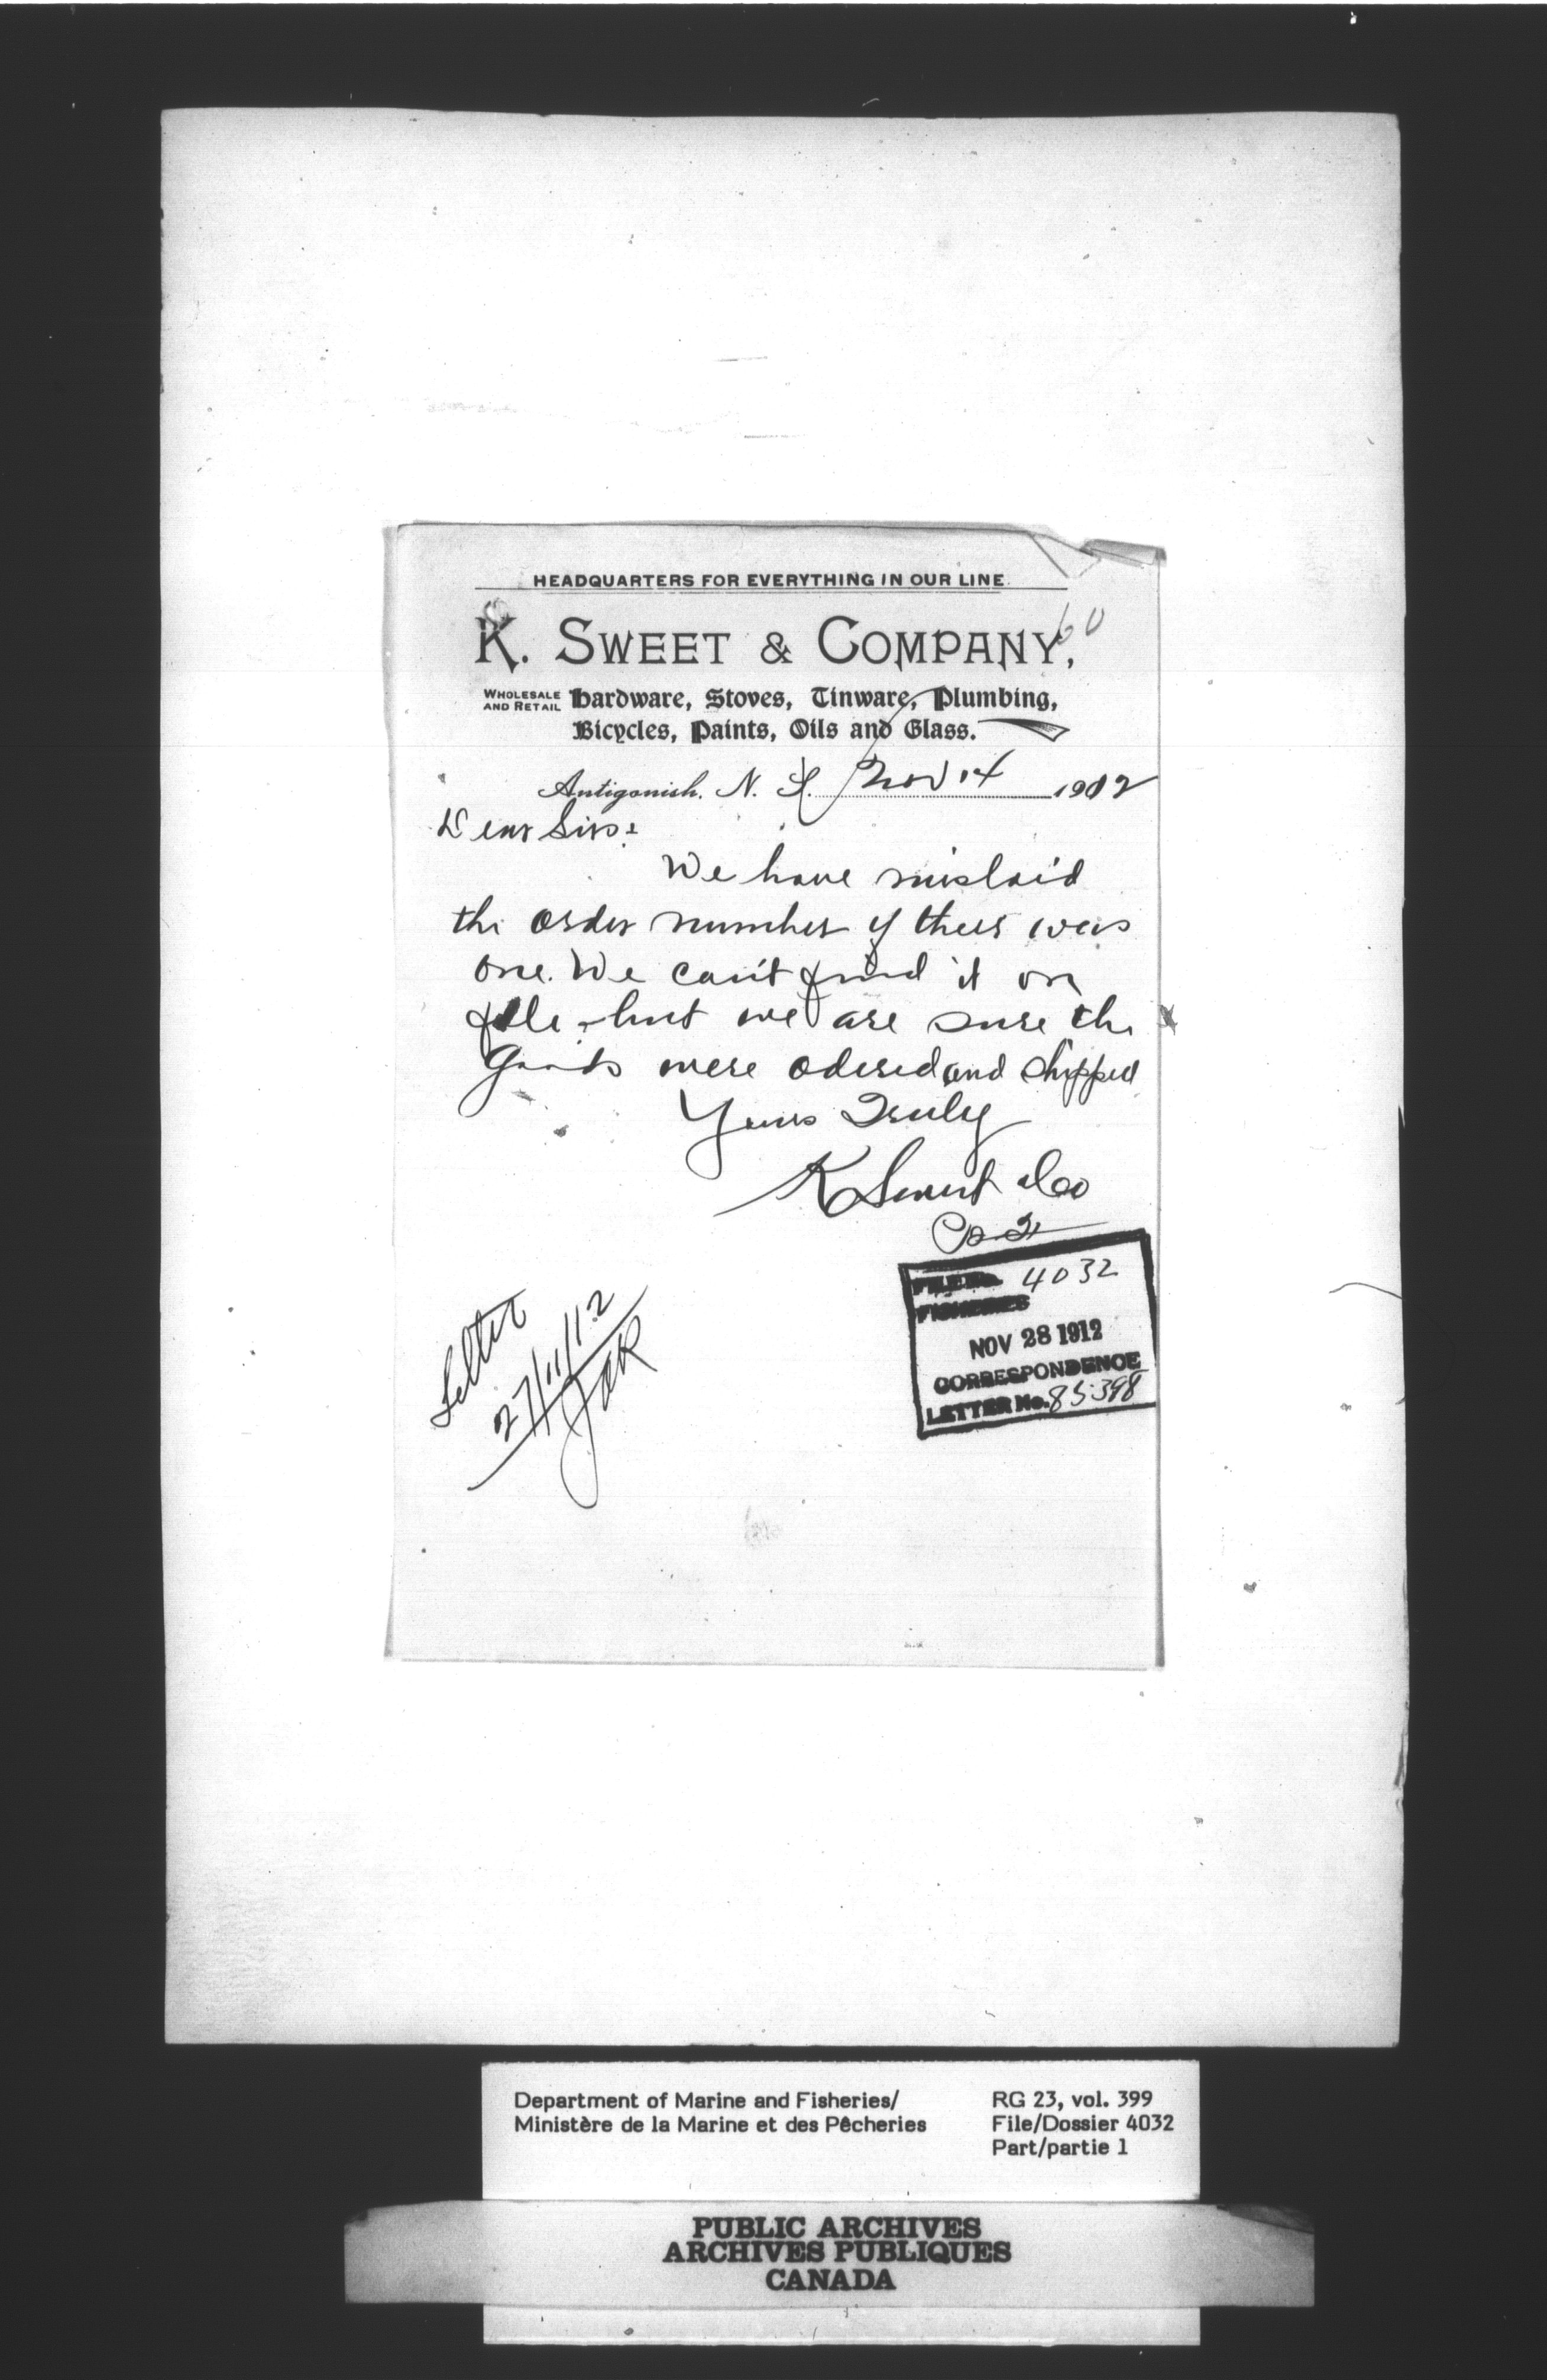 HEADQUARTERS FOR EVERYTHING IN OUR LINE.
60
K. SWEET & COMPANY,
WHOLESALE AND RETAIL Hardware, Stoves, Tinware, Plumbing,
Bicycles, Paints, Oils and Glass.
Antigonish, N. S. Nov 14 1912
Dear Sirs:
We have mislaid
the order number if there was
one. We can't find it on
file - but we are sure the
goods were odered and shipped
Yours Truly
K Sweet & Co
FILE No. 4032
FISHERIES
NOV 28 1912
CORRESPONDENCE
LETTER No. 85398
Letter
27/11/12
Department of Marine and Fisheries/
Ministère de la Marine et des Pêcheries
RG 23, vol. 399
File/Dossier 4032
Part/partie 1
PUBLIC ARCHIVES
ARCHIVES PUBLIQUES
CANADA